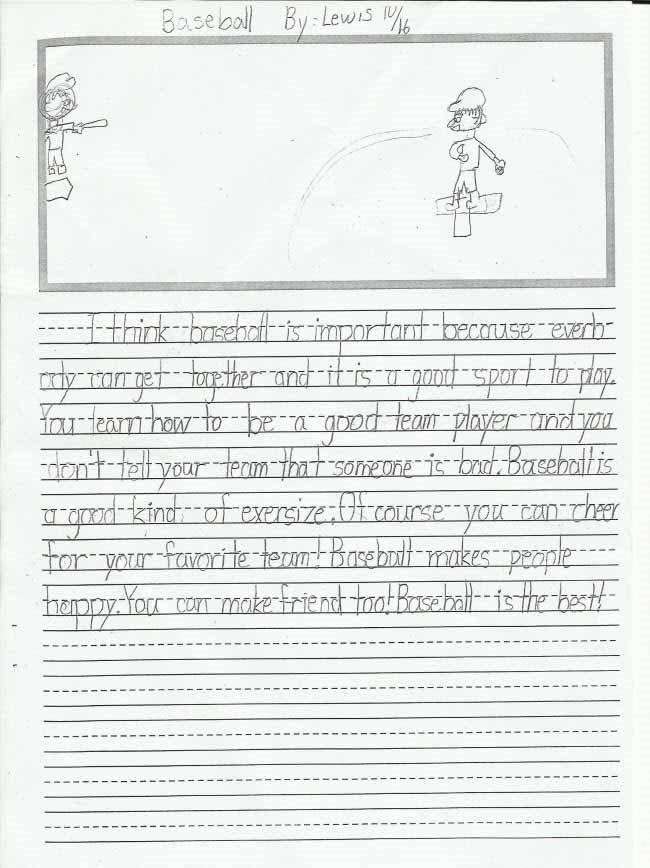 Baseball By: Lewis 10/16
I think baseball is important because everb-
ody can get together and it is a good sport to play.
You learn how to be a good team player and you
don't tell your team that someone is bad. Baseball is
a good kind of exersize. Of course you can cheer
for your favorite team! Baseball makes people
happy. You can make friend too! Baseball is the best!